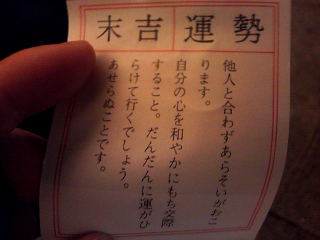 運勢
末吉
他人と合わずあらそいがおこ
ります。
自分の心を和やかにもち交際
すること。だんだんに運がひ
らけて行くでしょう。
あせらぬことです。